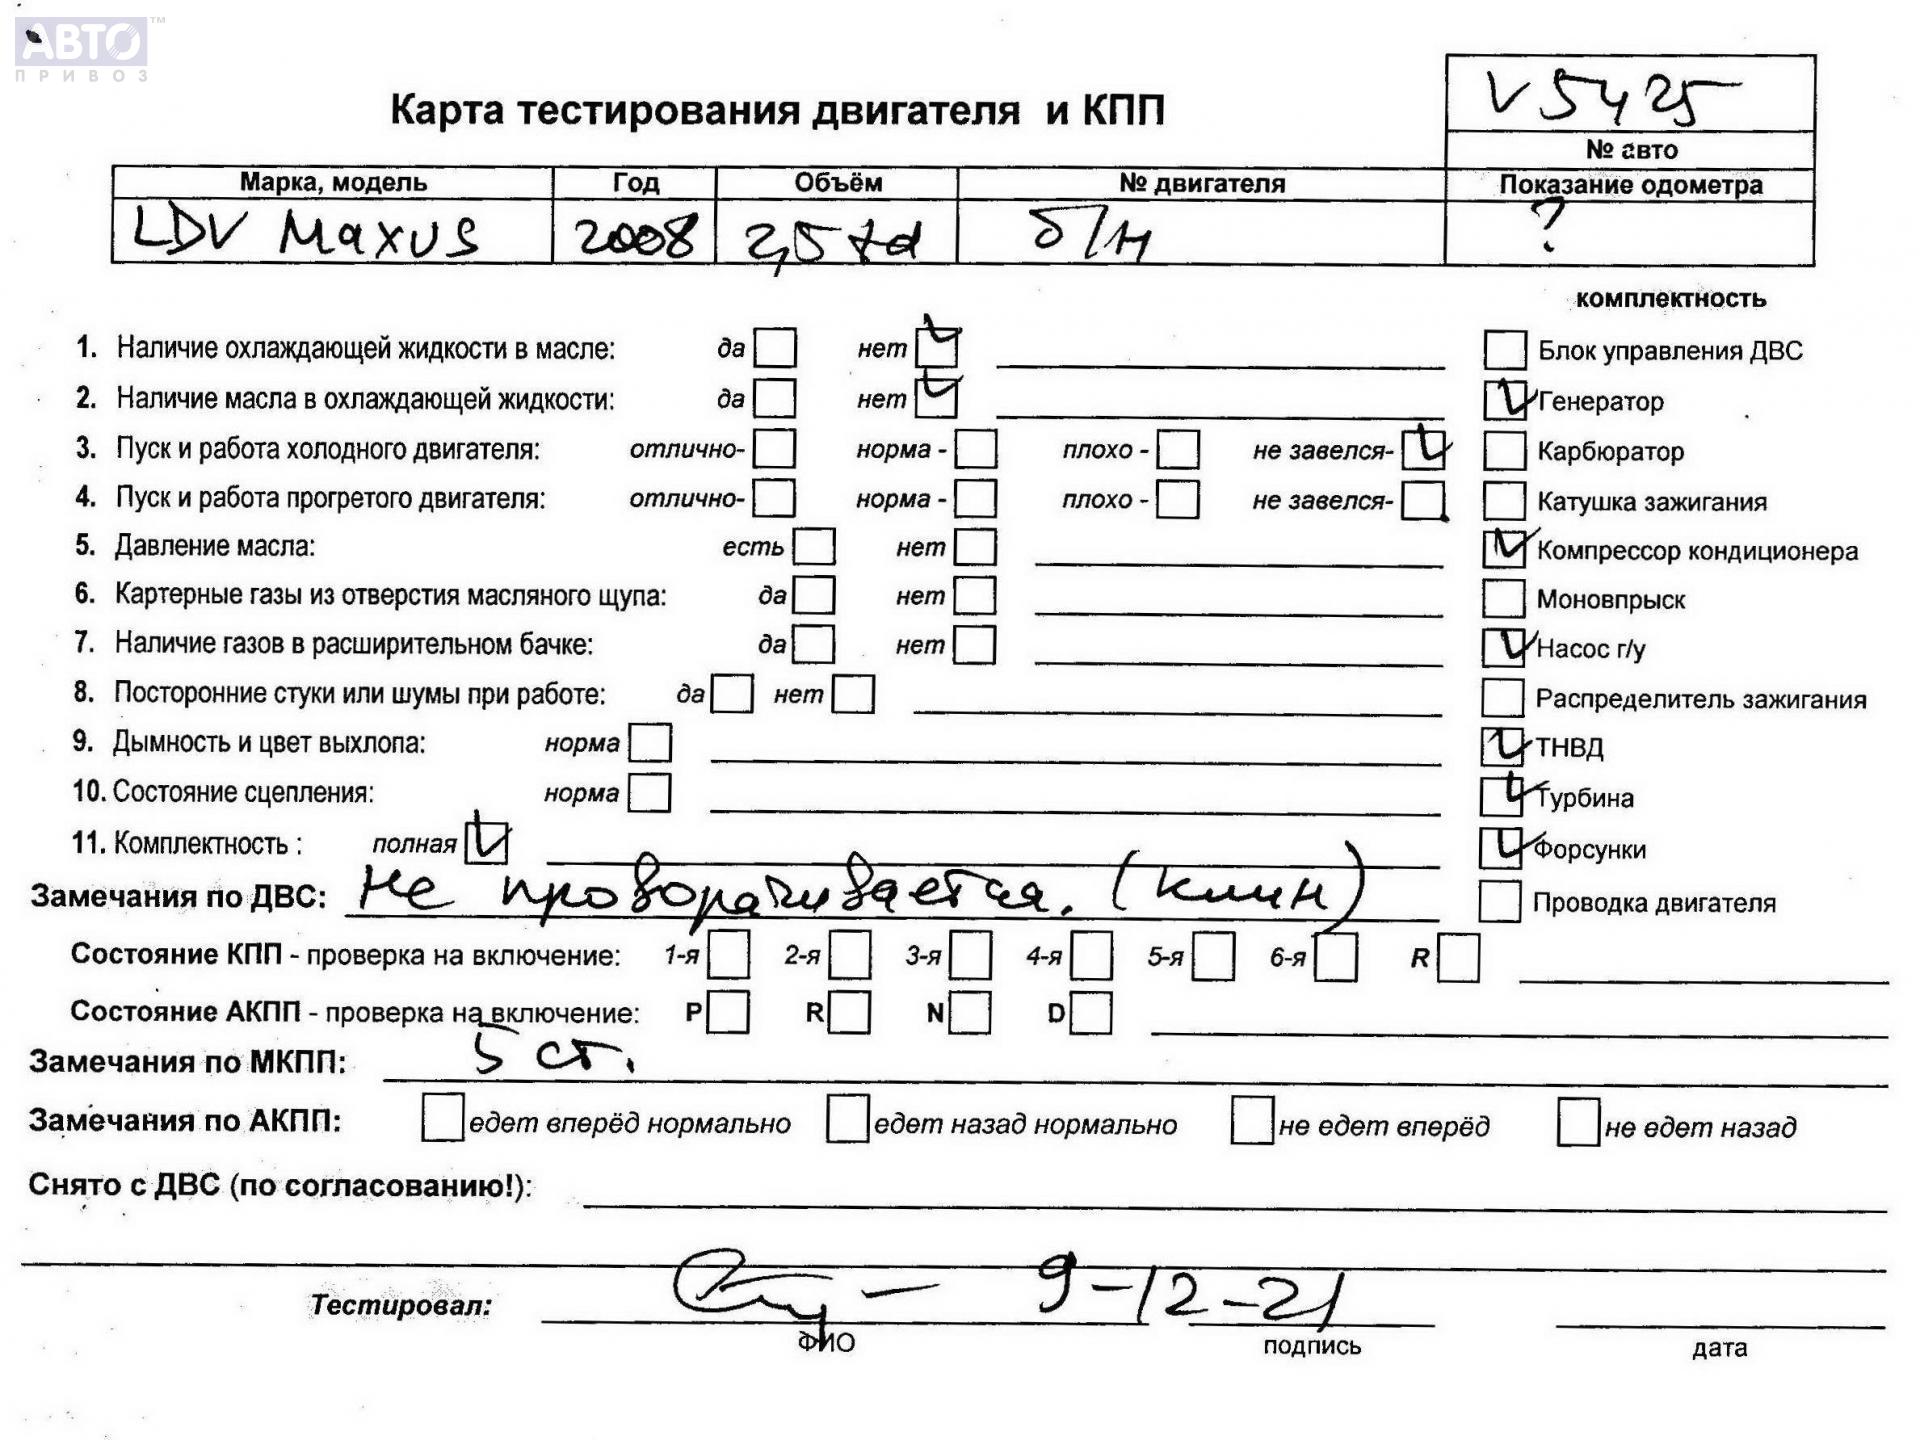 АВТО™
ПРИВОЗ
Карта тестирования двигателя и КПП
V5425
№ авто
Марка, модель Год Объём № двигателя Показание одометра
LDV Maxus 2008 2,5 td б/н ?
комплектность
1. Наличие охлаждающей жидкости в масле: да нет Блок управления ДВС
2. Наличие масла в охлаждающей жидкости: да нет Генератор
3. Пуск и работа холодного двигателя: отлично- норма - плохо - не завелся- Карбюратор
4. Пуск и работа прогретого двигателя: отлично- норма - плохо - не завелся- Катушка зажигания
5. Давление масла: есть нет Компрессор кондиционера
6. Картерные газы из отверстия масляного щупа: да нет Моновпрыск
7. Наличие газов в расширительном бачке: да нет Насос г/у
8. Посторонние стуки или шумы при работе: да нет Распределитель зажигания
9. Дымность и цвет выхлопа: норма ТНВД
10. Состояние сцепления: норма Турбина
11. Комплектность : полная Форсунки
Замечания по ДВС: Не проворачивается. (клин) Проводка двигателя
Состояние КПП - проверка на включение: 1-я 2-я 3-я 4-я 5-я 6-я R
Состояние АКПП - проверка на включение: P R N D
Замечания по МКПП: 5 ст.
Замечания по АКПП: едет вперёд нормально едет назад нормально не едет вперёд не едет назад
Снято с ДВС (по согласованию!):
Тестировал: 9-12-21
ФИО подпись дата